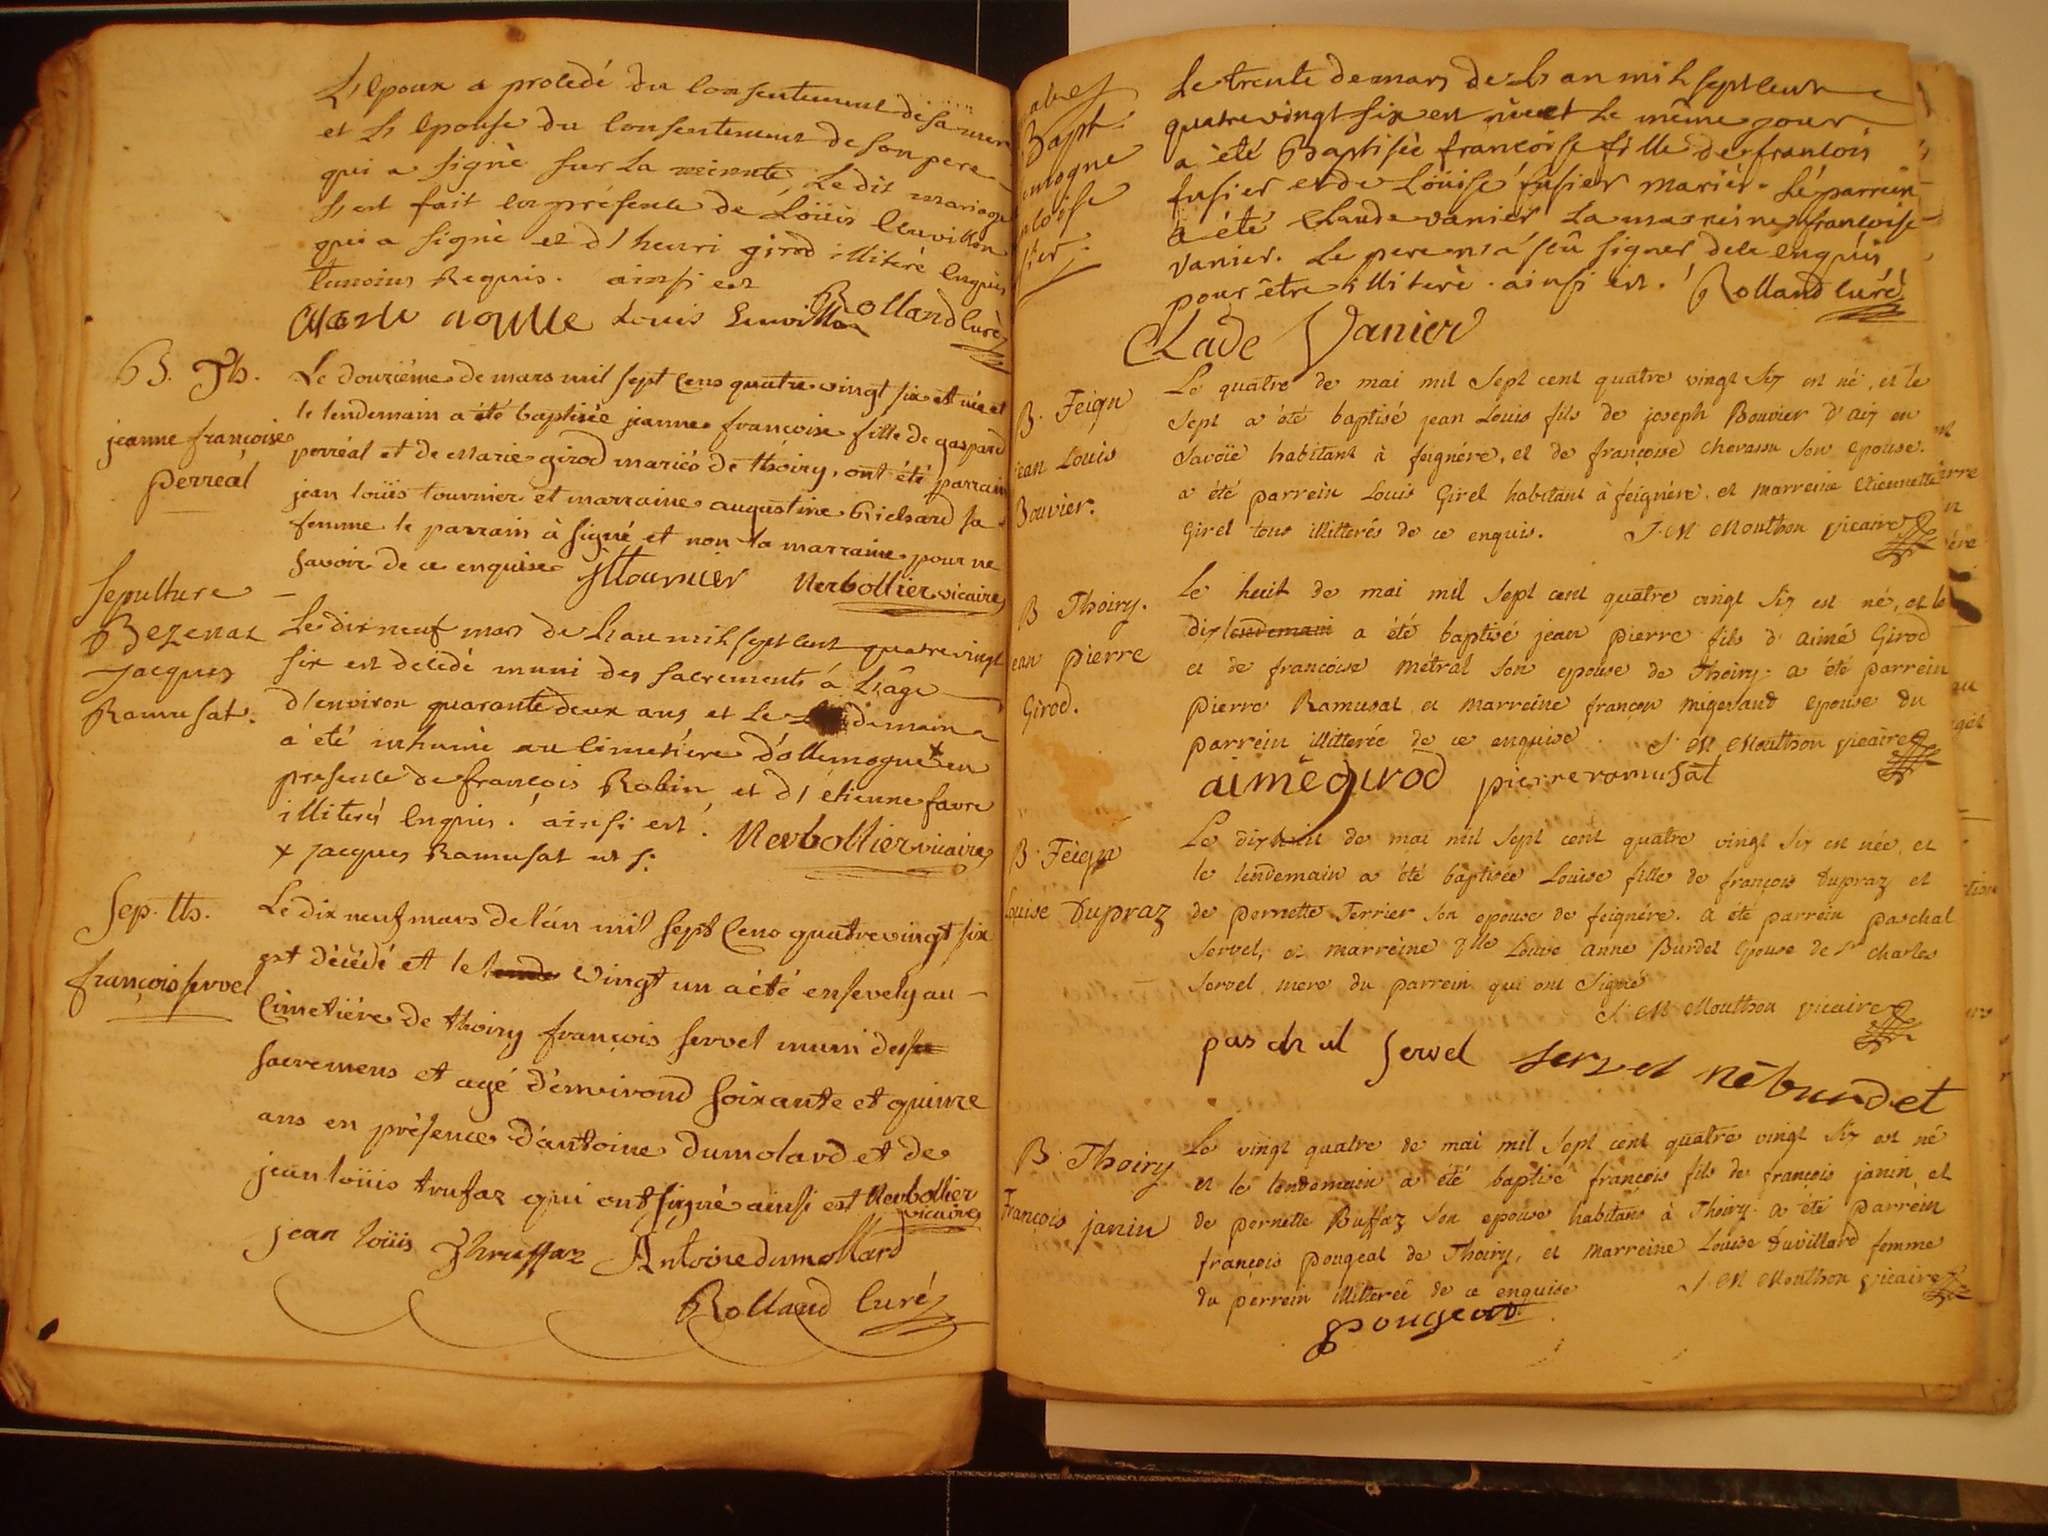 L'Epoux a procédé du consentement de sa mere
et L'Epouse du consentement de son pere
qui a signè sur la minute, Le dit mariage
s'est fait en présence de Loüis Cruvillon
qui a signè et d'henri girod illiterè Enquis
temoins Requis. ainsi est Rolland Curé
Louis
B. Th.
jeanne françoise
perréal
Le douzième de mars mil sept cens quatre vingt six est née et
le lendemain a été baptisée jeanne françoise fille de gaspard
perréal et de marie girod mariés de thoiry, ont été parrain
jean loüis tournier et marraine augustine Richard sa
femme le parrain à signé et non la marraine pour ne
savoir de ce enquise JLTournier Nerbollier vicaire
sepulture
Bezenas
jacques
Ramusat.
Le dix neuf mars de L'an mil sept cent quatre vingt
six est décédé muni des sacrements à L'âge
d'environ quarante deux ans et Le Lendemain
à été inhumé au Cimetière d'ollemogne x en
presence de françois Robin et d'étienne favre
illiterés Enquis. ainsi est. Nerbollier vicaire
x jacques Ramusat
Sep. th.
françois servel
Le dix neuf mars de l'an mil sept cens quatre vingt six
est dècèdé et le lende vingt un a été ensevely au
Cimetiére de thoiry françois servel muni des sa
sacremens et agé d'environd soixante et quinze
ans en prèsence d'antoine dumolard et de
jean loüis trufaz qui ont signé ainsi est Nerbollier
vicaire
jean loüis thruffaz Antoine dumollard
Rolland Curé
Bapt.
Le trente de mars de L'an mil sept cent
quatre vingt six est née et le même jour
a été Baptisée françoise fille de françois
fusier et de Loüise fusier mariés. Le parrein
a été Claude vanier La marreine françoise
vanier. Le pere n'a sçû signer de ce enquis
pour être illiterè. ainsi est. Rolland Curé
CLade Vanier
B. Feign
jean Louis
Bouvier.
Le quatre de mai mil sept cent quatre vingt six est né, et le
sept a été baptisé jean Louis fils de joseph Bouvier d'aix en
savoïe habitant à feignére, et de françoise chevassu son epouse.
a été parrein Louis Girel habitant à feignére, et marreine Etiennette
Girel tous illitterés de ce enquis. J. M Mouthon vicaire
B Thoiry.
jean pierre
Girod.
Le huit de mai mil sept cent quatre vingt six est né, et le
dix lendemain a été baptisé jean pierre fils d'aimé Girod
et de francoise métral son epouse de Thoiry. a été parrein
pierre Ramusat et marreine françon migerand epouse du
parrein illitterée de ce enquise. J. M Mouthon vicaire
aimé girod pierre romusat
B. Feign
Louise Dupraz
Le dix huit de mai mil sept cent quatre vingt six est née, et
le lendemain a été baptisée Louise fille de françois Dupraz et
de pernette Terrier son epouse de feignére. a été parrein paschal
servel, et marreine Louise anne Burdet epouse de Sr charles
servel mere du parrein qui ont signé
J. M Mouthon vicaire
paschal servel servel né burdet
B. Thoiry
François janin
Le vingt quatre de mai mil sept cent quatre vingt six est né
et le lendemain a été baptisé françois fils de françois janin et
de pernette Buffaz son epouse habitans à Thoiry. a été parrein
françois pougeat de Thoiry, et marreine Louise Duvillard femme
du perrein illitterée de ce enquise J. M Mouthon vicaire